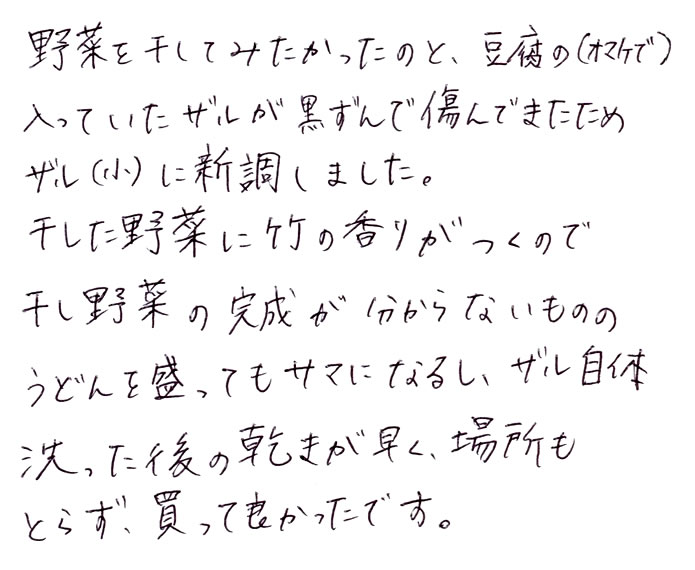 野菜を干してみたかったのと、豆腐の(オマケで)
入っていたザルが黒ずんで傷んできたため
ザル(小)に新調しました。
干した野菜に竹の香りがつくので
干し野菜の完成が分からないものの
うどんを盛ってもサマになるし、ザル自体
洗った後の乾きが早く、場所も
とらず、買って良かったです。